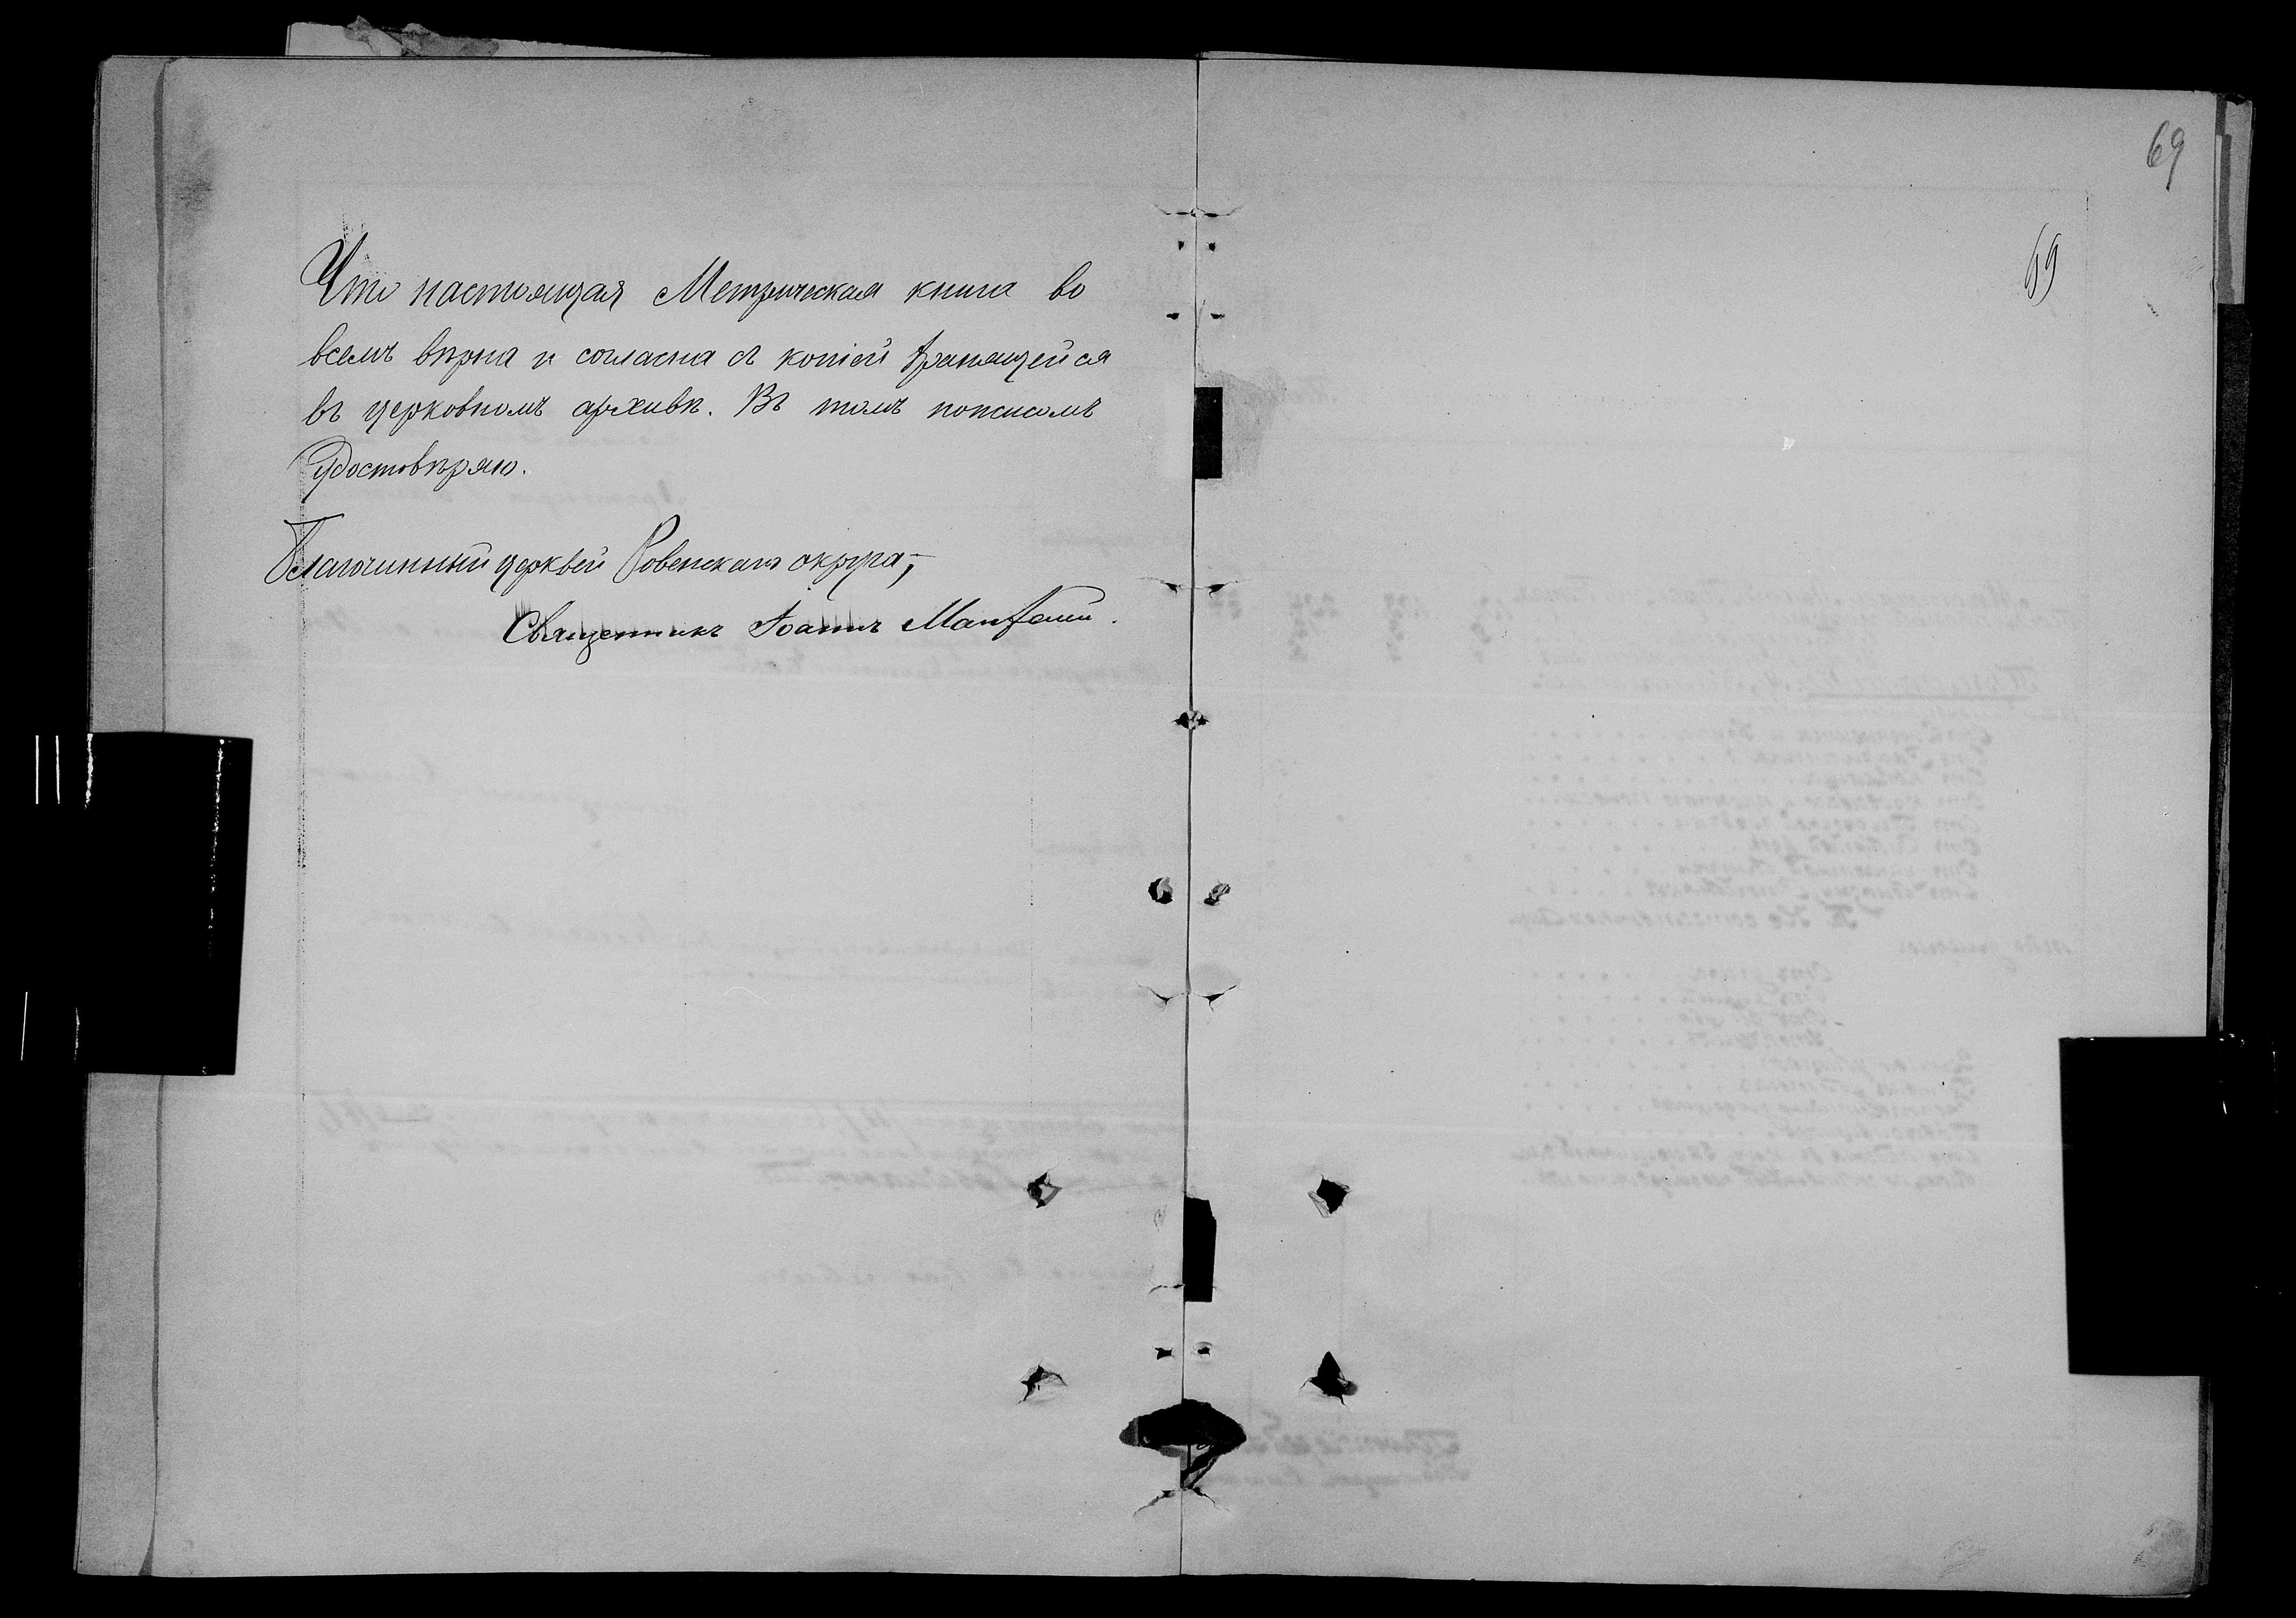 69
69
Что настоящая Метрическая книга во
всемъ вѣрна и согласна съ копіей хранящейся
въ церковномъ архивѣ. Въ томъ
удостовѣряю.
Благочинный церквей Ровенскаго округа,
Священникъ Іоаннъ